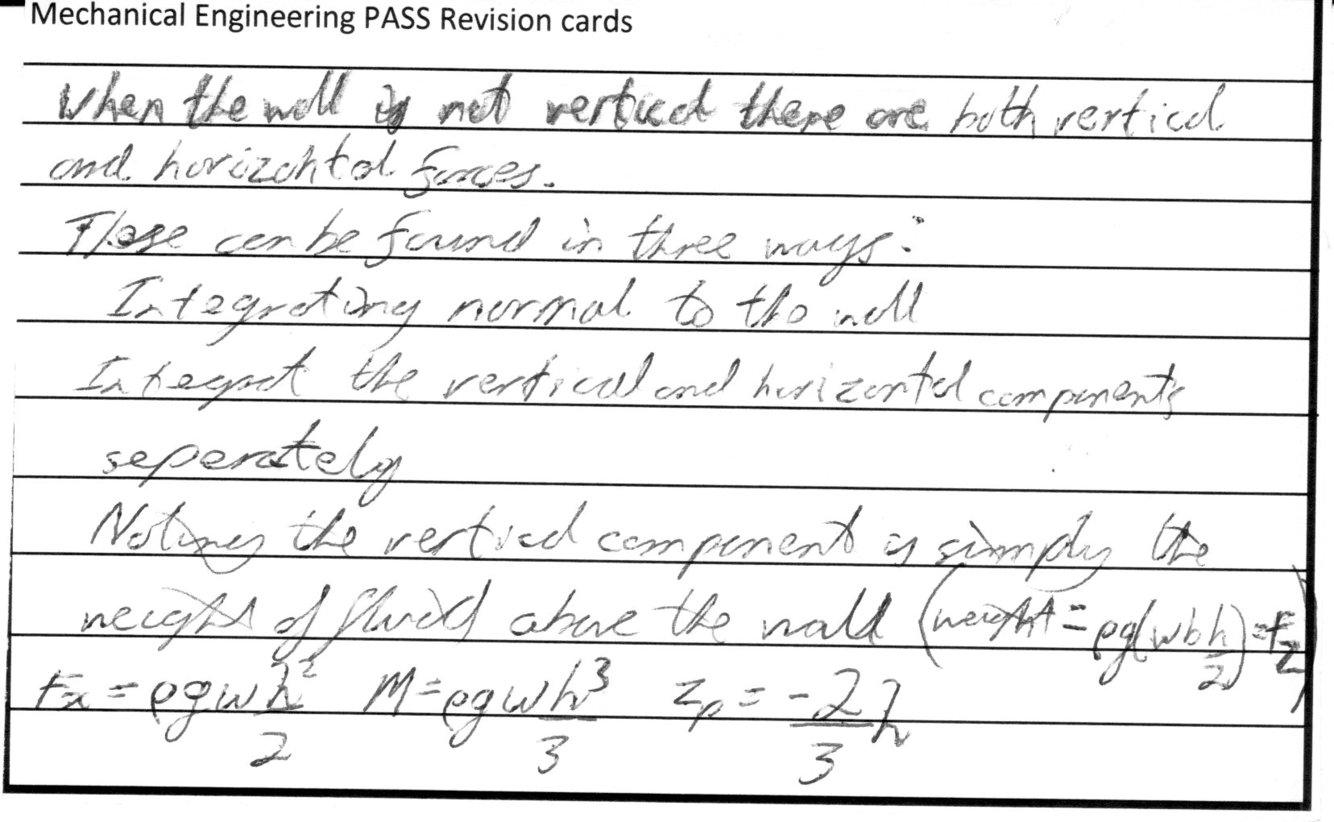 Mechanical Engineering PASS Revision cards
When the wall is not vertical there are both vertical
and horizontal forces.
These can be found in three ways:
Integrating normal to the wall
Integrat the vertical and horizontal components
seperately
Noting the vertical component is simply the
weight of fluid above the wall (weight = ρg(wbh/2) = Fz)
Fx = ρgwh²/2 M = ρgwh³/3 zp = -2/3 h